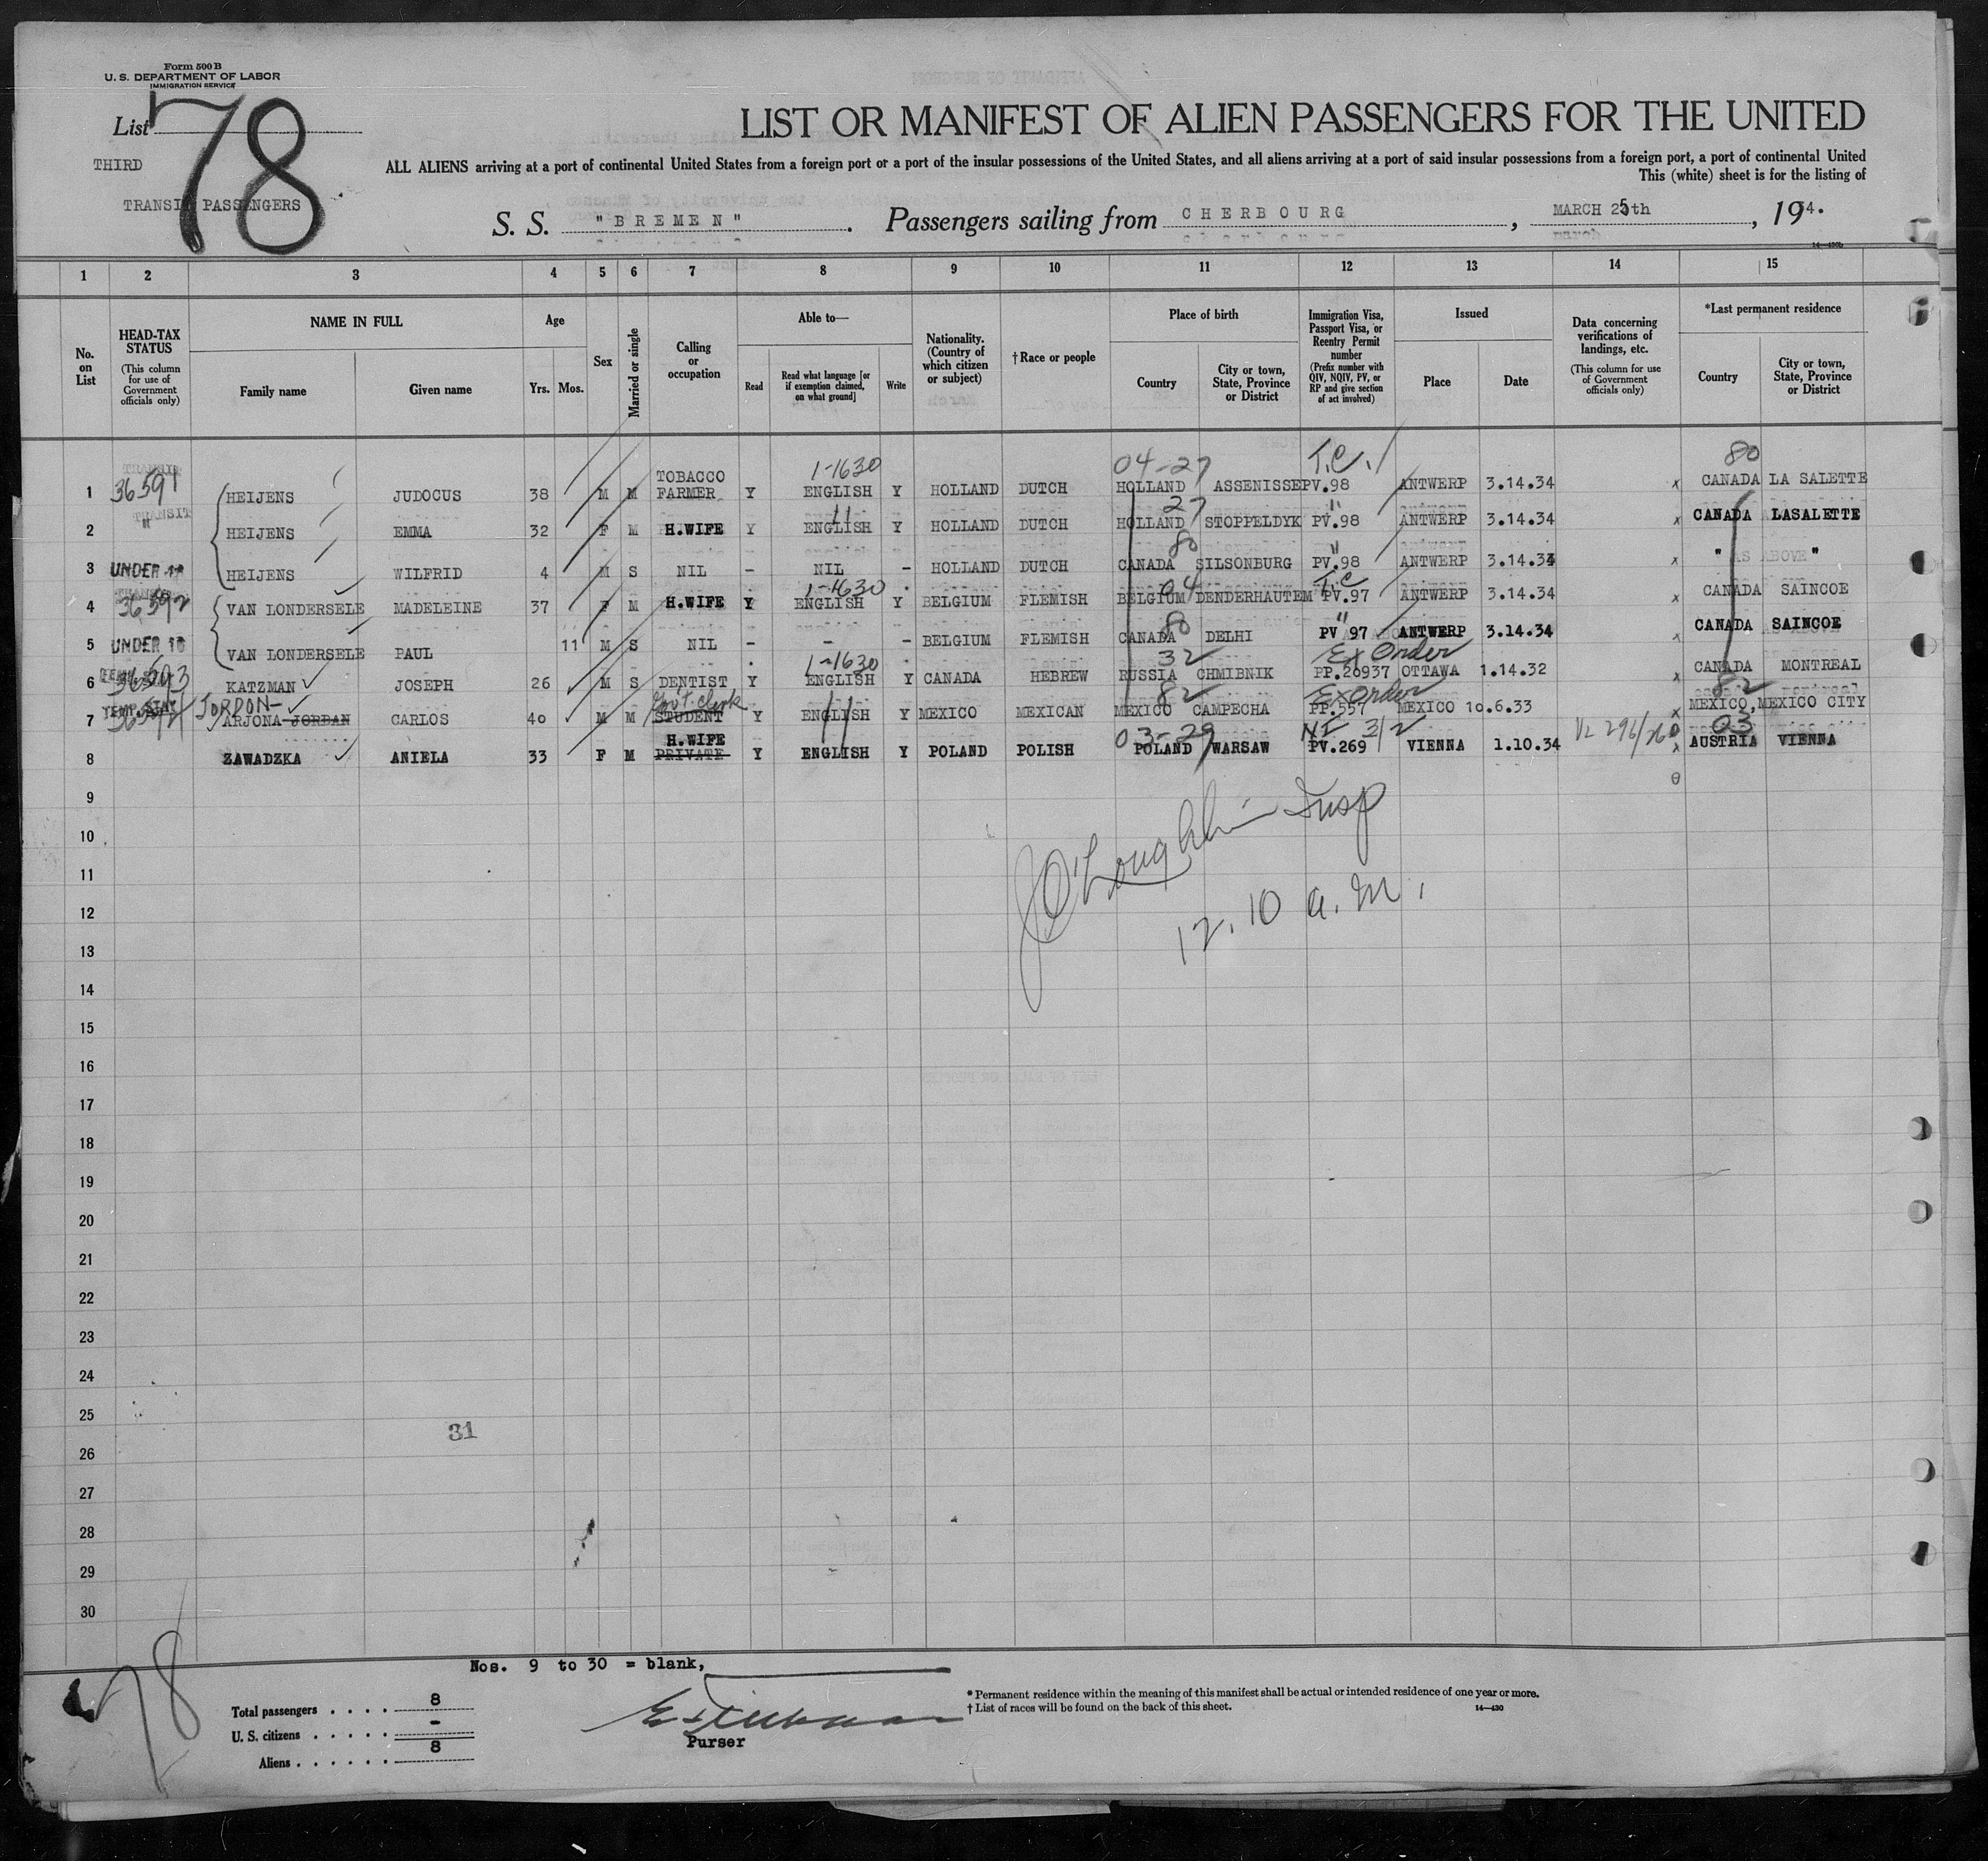 Form 500 B
U. S. DEPARTMENT OF LABOR
IMMIGRATION SERVICE
List 78
THIRD
TRANSIT PASSENGERS
LIST OR MANIFEST OF ALIEN PASSENGERS FOR THE UNITED
ALL ALIENS arriving at a port of continental United States from a foreign port or a port of the insular possessions of the United States, and all aliens arriving at a port of said insular possessions from a foreign port, a port of continental United
This (white) sheet is for the listing of
S. S. "BREMEN". Passengers sailing from CHERBOURG, MARCH 25th, 1934.
14—430b
1 2 3 4 5 6 7 8 9 10 11 12 13 14 15
No. on List
HEAD-TAX STATUS (This column for use of Government officials only)
NAME IN FULL
Family name Given name
Age
Yrs. Mos.
Sex
Married or single
Calling or occupation
Able to—
Read Read what language [or if exemption claimed, on what ground] Write
Nationality. (Country of which citizen or subject)
†Race or people
Place of birth
Country City or town, State, Province or District
Immigration Visa, Passport Visa, or Reentry Permit number (Prefix number with QIV, NQIV, PV, or RP and give section of act involved)
Issued
Place Date
Data concerning verifications of landings, etc. (This column for use of Government officials only)
*Last permanent residence
Country City or town, State, Province or District
TRANSIT TOBACCO 1-1630 04-27 T.C. 80
1 36591 HEIJENS JUDOCUS 38 M M FARMER Y ENGLISH Y HOLLAND DUTCH HOLLAND ASSENISSE PV.98 ANTWERP 3.14.34 x CANADA LA SALETTE
TRANSIT 27 "
2 " HEIJENS EMMA 32 F M H.WIFE Y ENGLISH Y HOLLAND DUTCH HOLLAND STOPPELDYK PV.98 ANTWERP 3.14.34 x CANADA LASALETTE
80 "
3 UNDER HEIJENS WILFRID 4 M S NIL - NIL - HOLLAND DUTCH CANADA SILSONBURG PV.98 ANTWERP 3.14.34 x " AS ABOVE "
1-1630 04 T.C
4 36592 VAN LONDERSELE MADELEINE 37 F M H.WIFE Y ENGLISH Y BELGIUM FLEMISH BELGIUM DENDERHAUTEM PV.97 ANTWERP 3.14.34 x CANADA SAINCOE
80 "
5 UNDER VAN LONDERSELE PAUL 11 M S NIL - - - BELGIUM FLEMISH CANADA DELHI PV 97 ANTWERP 3.14.34 x CANADA SAINCOE
1-1630 32 Ex Order
6 36593 KATZMAN JOSEPH 26 M S DENTIST Y ENGLISH Y CANADA HEBREW RUSSIA CHMIBNIK PP.20937 OTTAWA 1.14.32 x CANADA MONTREAL
JORDON- Gov't. Clerk 82 Ex Order 82
7 ARJONA JORDAN CARLOS 40 M M STUDENT Y ENGLISH Y MEXICO MEXICAN MEXICO CAMPECHA PP.557 MEXICO 10.6.33 x MEXICO, MEXICO CITY
H.WIFE 03-29 03
8 ZAWADZKA ANIELA 33 F M PRIVATE Y ENGLISH Y POLAND POLISH POLAND WARSAW PV.269 VIENNA 1.10.34 x AUSTRIA VIENNA
9
10
11
12
13
14
15
16
17
18
19
20
21
22
23
24
25
26
27
28
29
30
J O'Loughlin Insp
12.10 a.m.
31
Nos. 9 to 30 = blank,
78
Total passengers . . . . 8
U. S. citizens . . . . . -
Aliens . . . . . . 8
Purser
* Permanent residence within the meaning of this manifest shall be actual or intended residence of one year or more.
† List of races will be found on the back of this sheet. 14—430